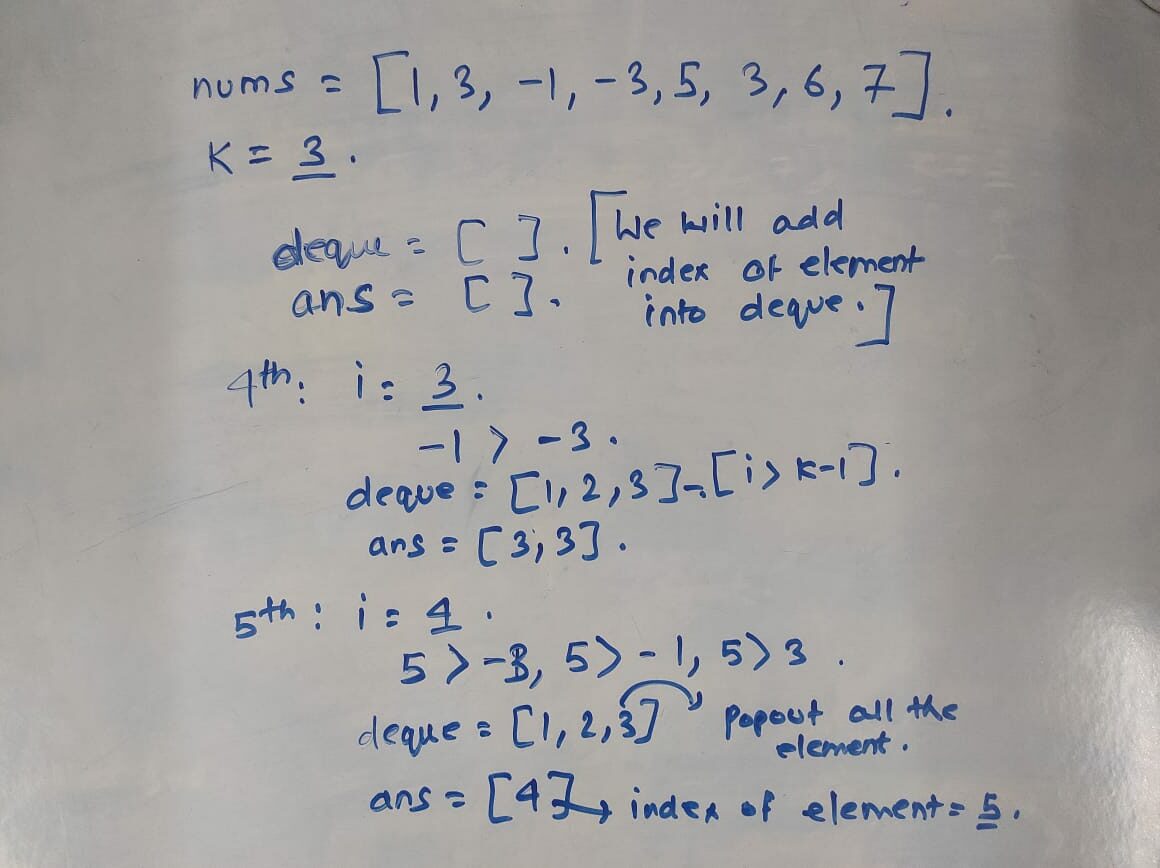 nums = [1, 3, -1, -3, 5, 3, 6, 7].
K = 3.
deque = [ ]. [We will add
index of element
ans = [ ].
into deque.]
4th: i = 3.
-1 > -3.
deque = [1, 2, 3] - [i > k-1].
ans = [3, 3].
5th: i = 4.
5 > -3, 5 > -1, 5 > 3.
deque = [1, 2, 3] Popout all the
element.
ans = [4] → index of element = 5.